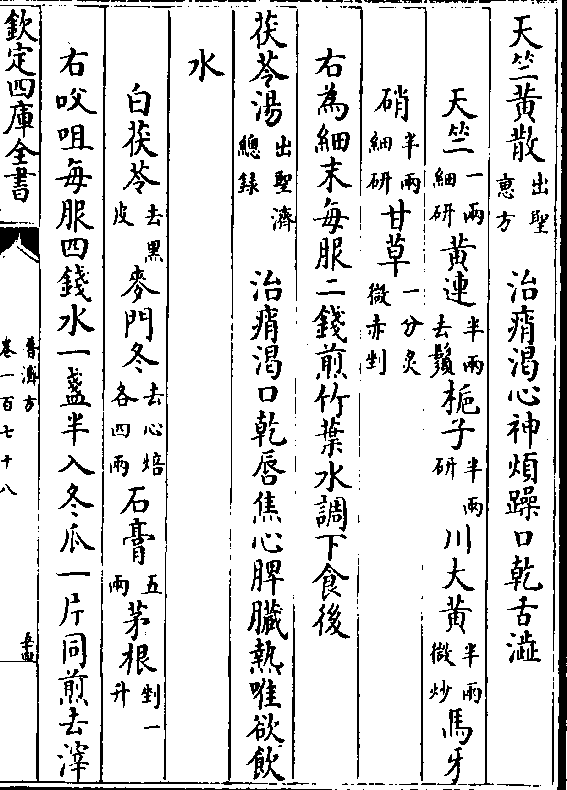 天竺黄散出聖惠方　治痟渴心神煩躁口乾舌澁
天竺一兩細研黄連半兩去鬚梔子半兩研川大黄半兩微炒馬牙
硝半兩細研甘草一分炙微赤剉
右為細末每服二錢煎竹葉水調下食後
茯苓湯出聖濟總録　治痟渴口乾唇焦心脾臟熱唯欲飲
水
白茯苓去黒皮麥門冬去心焙各四兩石膏五兩茅根剉一升
右㕮咀每服四錢水一盞半入冬瓜一片同煎去滓
欽定四庫全書
普濟方
卷一百七十八